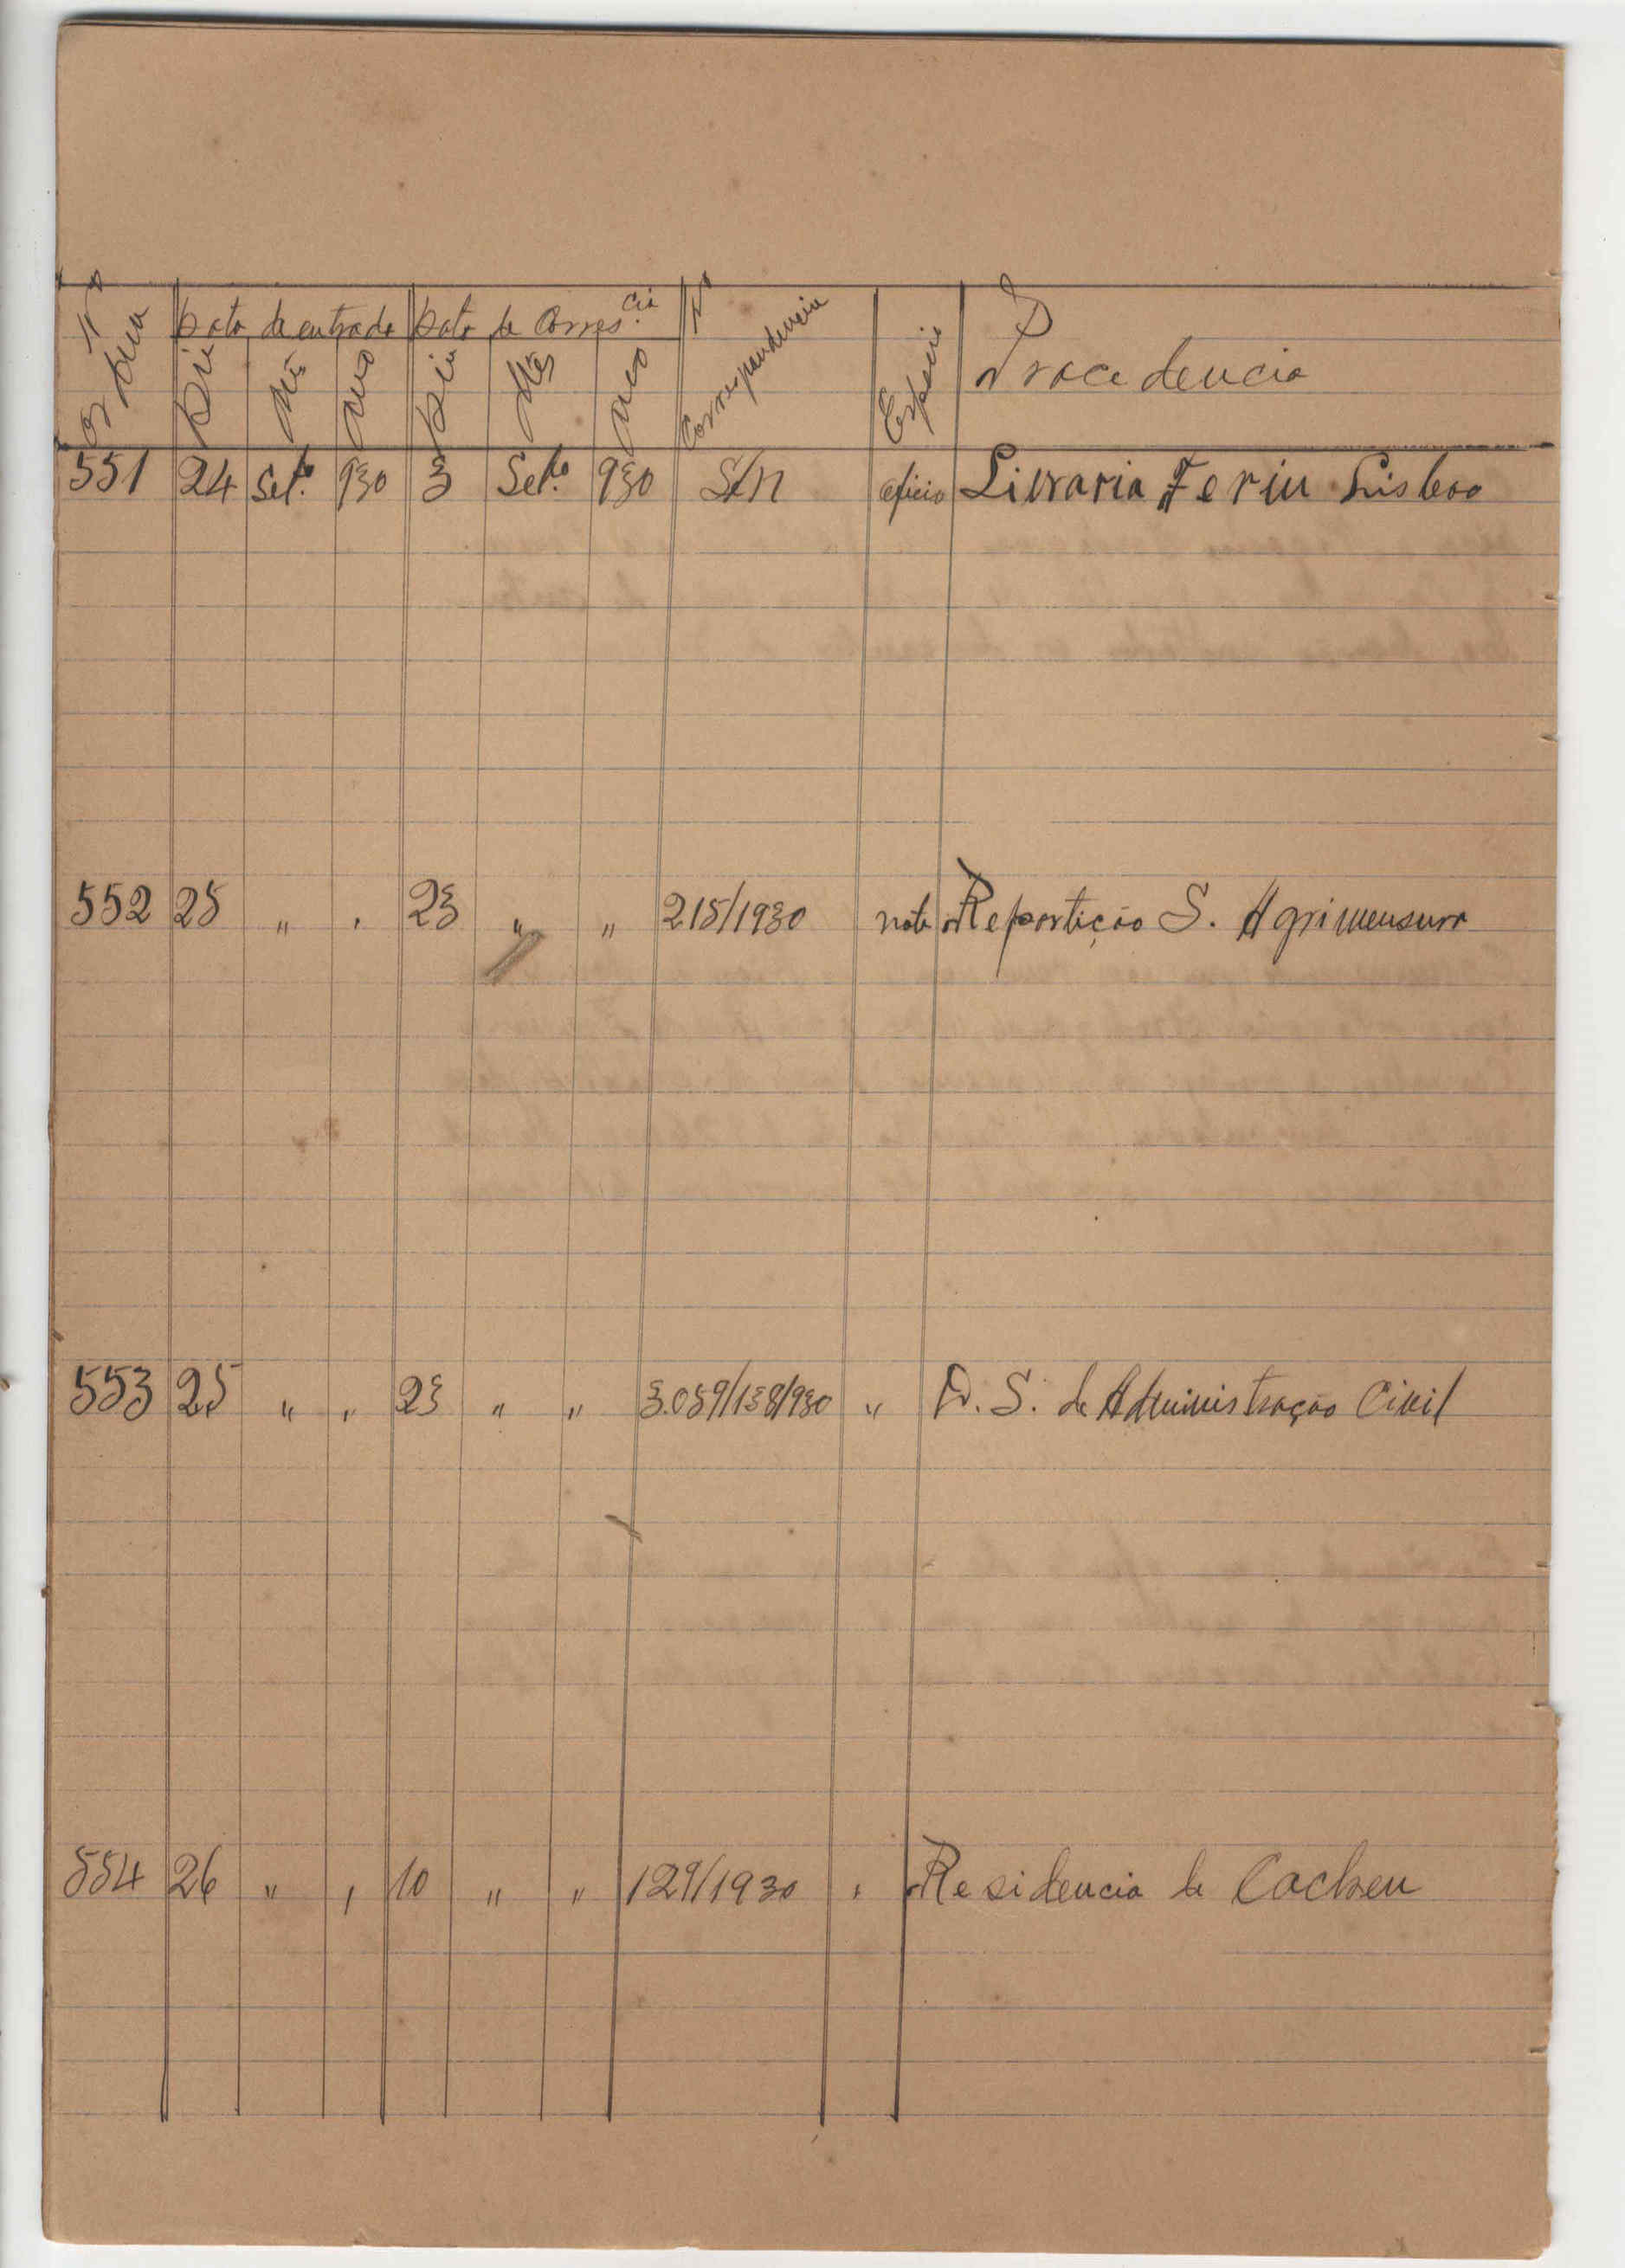 Nº Ordem Data de entrada Data de Corres.cia Nº Correspondencia Especie Procedencia
Dia Mês Ano Dia Mês Ano
551 24 Set.º 930 3 Set.º 930 S/n oficio Livraria Ferin Lisboa
552 25 " , 23 " " 215/1930 nota Repartição S. Agrimensura
553 25 " , 23 " " 3.059/138/930 " D. S. de Administração Civil
554 26 " , 10 " " 129/1930 , Residencia de Cacheu